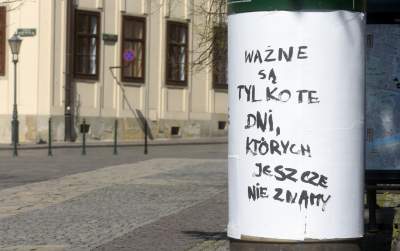 WAŻNE
SĄ
TYLKO TE
DNI,
KTÓRYCH
JESZCZE
NIE ZNAMY